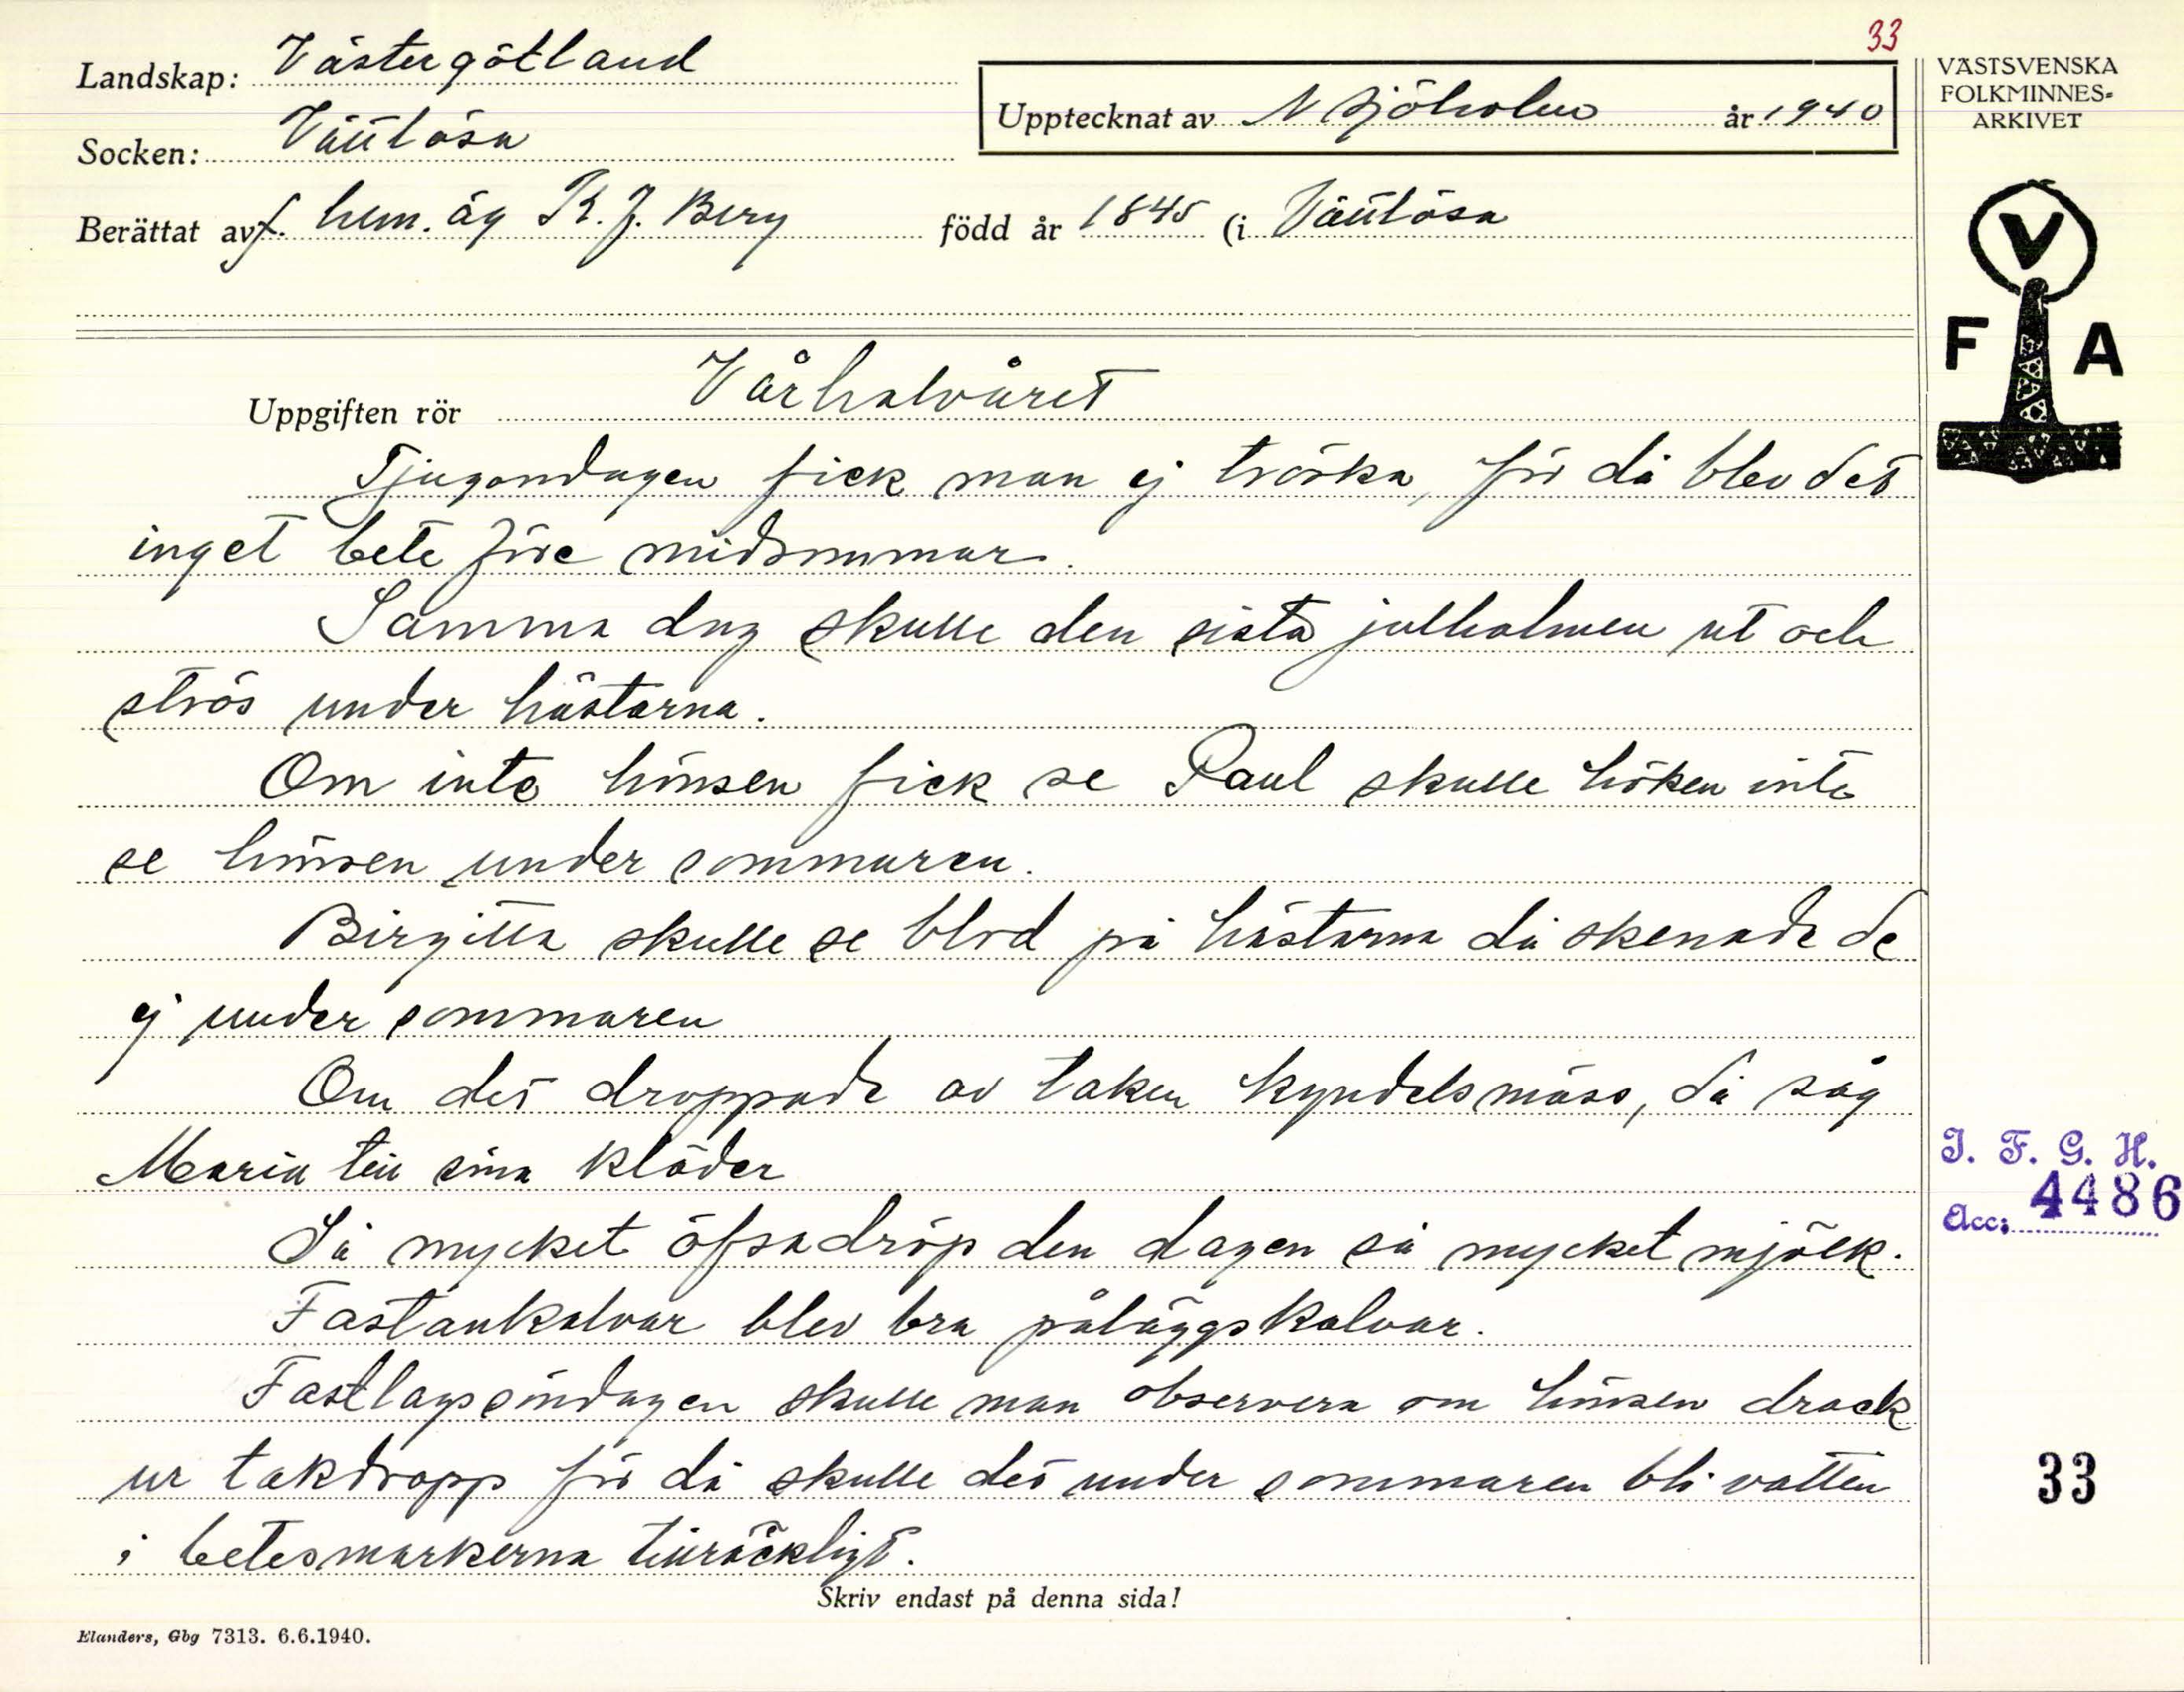 33
Landskap: Västergötland
Upptecknat av N Sjöholm år 1940
VÄSTSVENSKA
FOLKMINNES-
ARKIVET
Socken: Vättlösa
Berättat av f. hem. äg K. J. Berg född år 1845 (i Vättlösa
V
F A
Uppgiften rör Vårhalvåret
Tjugondagen fick man ej tröska, för då blev det
inget bete före midsommar.
Samma dag skulle den sista julhalmen ut och
strös under hästarna.
Om inte hönsen fick se Paul skulle höken inte
se hönsen under sommaren.
Birgitta skulle se blod på hästarna då skenade de
ej under sommaren
Om det droppade av taken kyndelsmäss, då såg
Maria till sina kläder
Så mycket öfsadröp den dagen så mycket mjölk.
Fastankalvar blev bra påläggskalvar.
Fastlagssöndagen skulle man observera om hönsen drack
ur takdropp för då skulle det under sommaren bli vatten
i betesmarkerna tillräckligt.
I. F. G. H.
Acc: 4486
33
Skriv endast på denna sida!
Elanders, Gbg 7313. 6.6.1940.